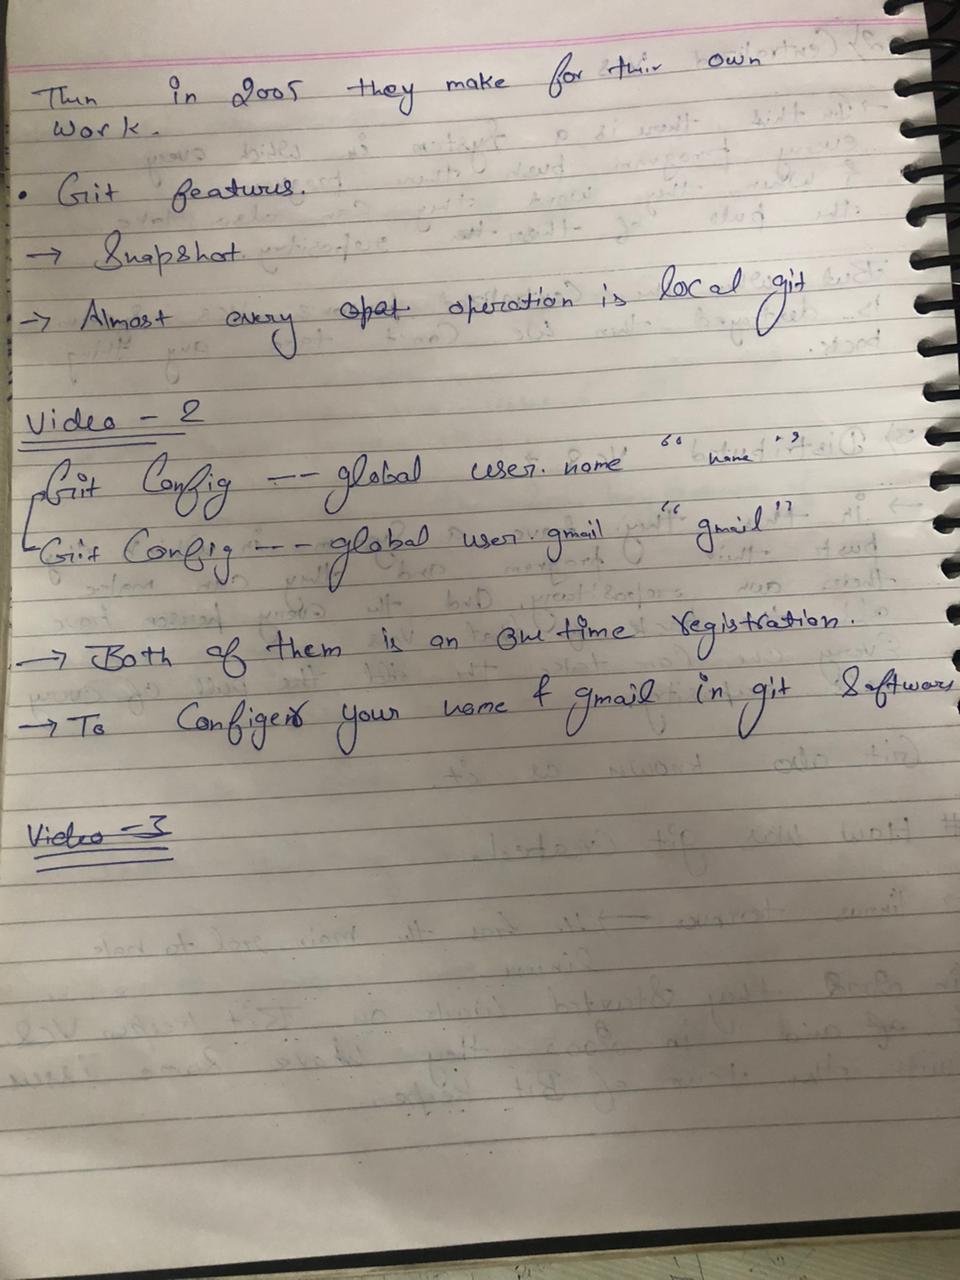 Then in 2005 they make for their own
work.
• Git features.
→ Snapshot
→ Almost every opet operation is local git
Video - 2
Git Config -- global user.name "name"
Git Config -- global user.gmail "gmail"
→ Both of them is an one time registration.
→ To Configer your name & gmail in git Software
Video - 3